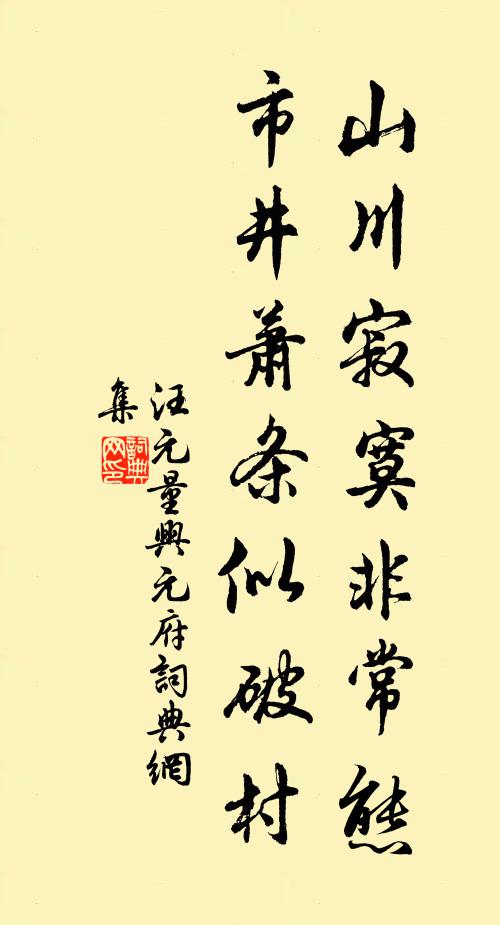 山川寂寞非常態
市井蕭条似破村
汪元量興元府詞典網
集
詞典網印